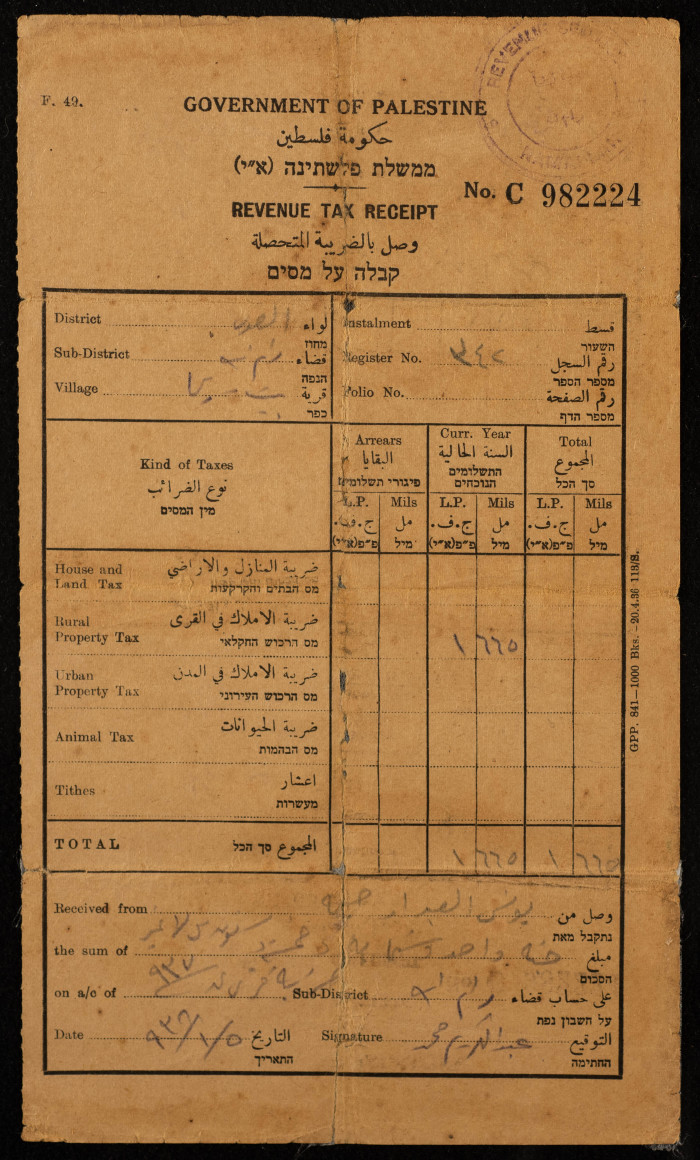 F. 49.
GOVERNMENT OF PALESTINE
حكومة فلسطين
ממשלת פלשתינה (א״י)
No. C 982224
REVENUE TAX RECEIPT
وصل بالضريبة المتحصلة
קבלה על מסים
District لواء
מחוז
Sub-District قضاء رام الله
הנפה
Village قرية بيت ريما
כפר
Instalment قسط
השעור
Register No. ٣٤٢ رقم السجل
מספר הספר
Folio No. رقم الصفحة
מספר הדף
Kind of Taxes
نوع الضرائب
מין המסים
Arrears
البقايا
פיגורי תשלומים
Curr. Year
السنة الحالية
התשלומים הנוכחים
Total
المجموع
סך הכל
L.P. Mils L.P. Mils L.P. Mils
ج.ف. مل ج.ف. مل ج.ف. مل
פ״פ(א״י) מיל פ״פ(א״י) מיל פ״פ(א״י) מיל
House and Land Tax ضريبة المنازل والاراضي
מס הבתים והקרקעות
Rural Property Tax ضريبة الاملاك في القرى
מס הרכוש החקלאי
١ ٦٦٥
Urban Property Tax ضريبة الاملاك في المدن
מס הרכוש העירוני
Animal Tax ضريبة الحيوانات
מס הבהמות
Tithes اعشار
מעשרות
TOTAL المجموع סך הכל ١ ٦٦٥ ١ ٦٦٥
Received from وصل من
נתקבל מאת
the sum of مبلغ
הסכום
on a/c of Sub-District رام الله على حساب قضاء
על חשבון נפת
Date ٩٣٦/١/٥ التاريخ
התאריך
Signature عبدالكريم التوقيع
החתימה
GPP. 841—1000 Bks.—20.4.36 113/S.